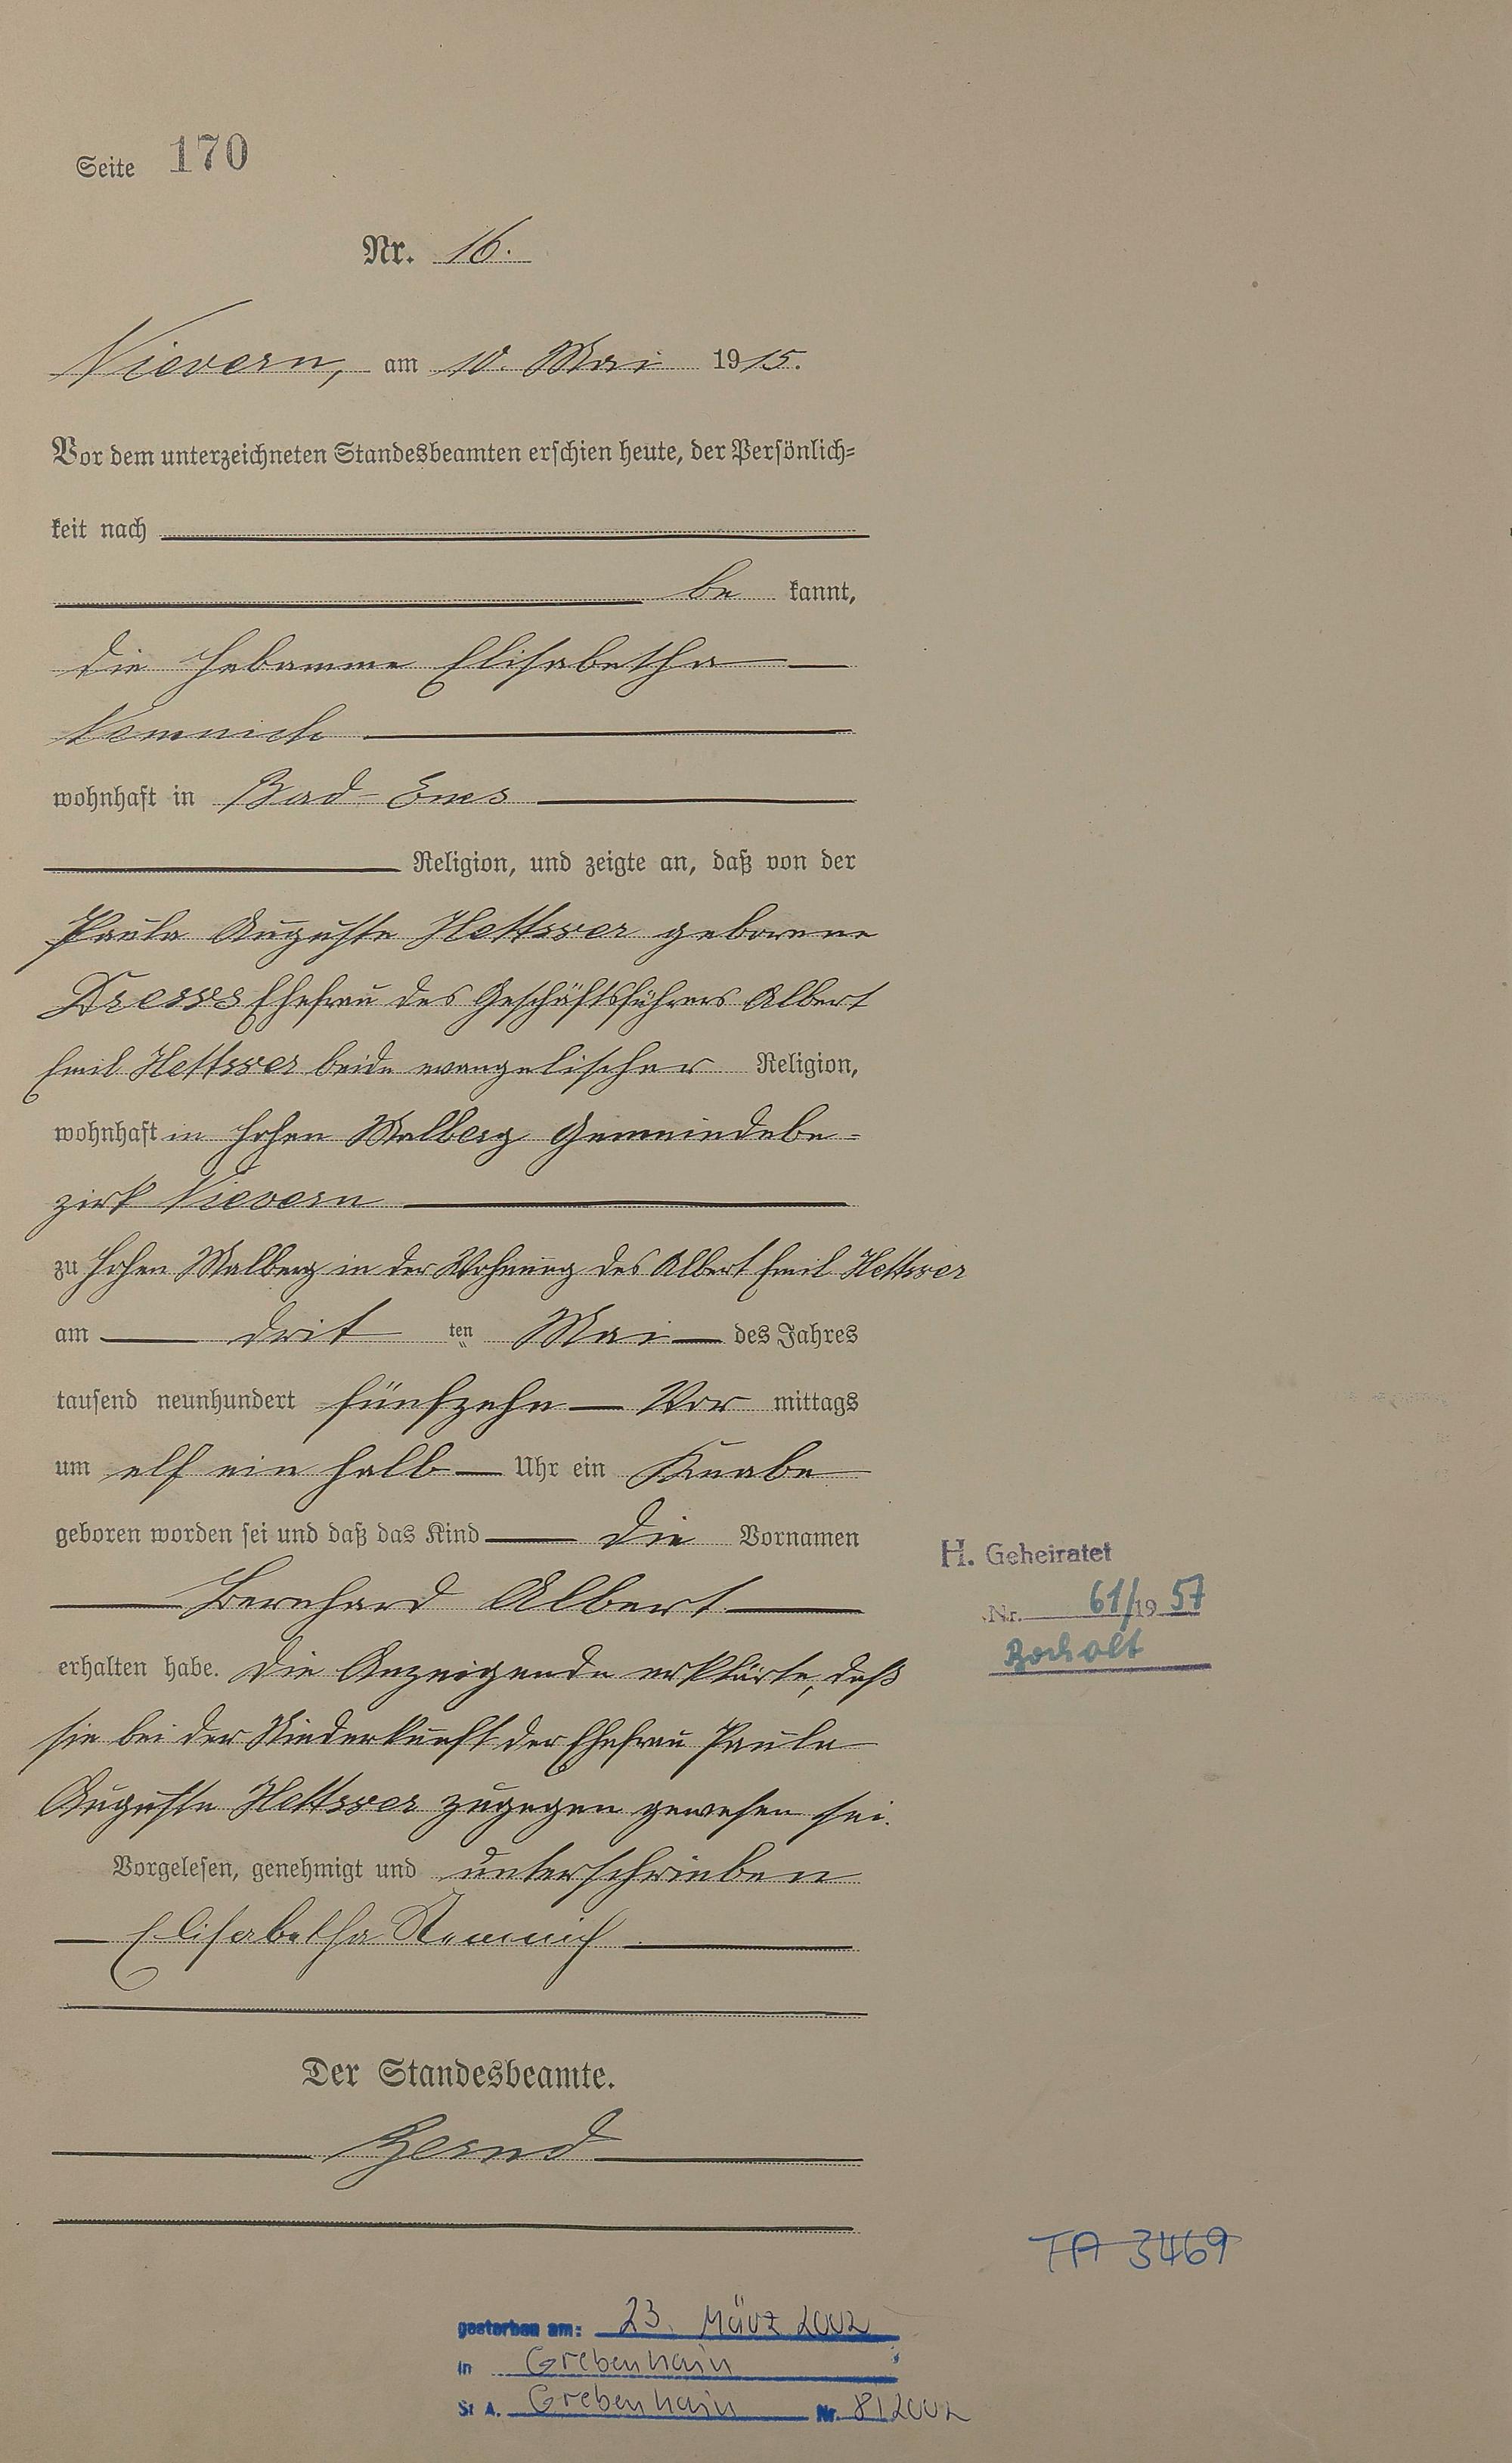 Seite 170
Nr. 16.
Nievern, am 10. Mai 1915.
Vor dem unterzeichneten Standesbeamten erschien heute, der Persönlich-
keit nach
be kannt,
die Hebamme Elisabetha
Nemnich
wohnhaft in Bad-Ems
Religion, und zeigte an, daß von der
Paula Auguste Hettwer geborene
Ehefrau des Geschäftsführers Albert
Emil Hettwer beide evangelischer Religion,
wohnhaft in Hohen Malberg Gemeindebe-
zirk Nievern
zu Hohen Malberg in der Wohnung des Albert Emil Hettwer
am dritten Mai des Jahres
tausend neunhundert fünfzehn Vor mittags
um elf ein halb Uhr ein Knabe
geboren worden sei und daß das Kind die Vornamen
Bernhard Albert
erhalten habe. Die Anzeigende erklärte, daß
sie bei der Niederkunft der Ehefrau Paula
Auguste Hettwer zugegen gewesen sei.
Vorgelesen, genehmigt und unterschrieben
Elisabetha Nemnich
Der Standesbeamte.
H. Geheiratet
Nr. 61/1957
Bocholt
TA 3469
gestorben am: 23. März 2002
in Grebenhain
St A. Grebenhain Nr. 8/2002